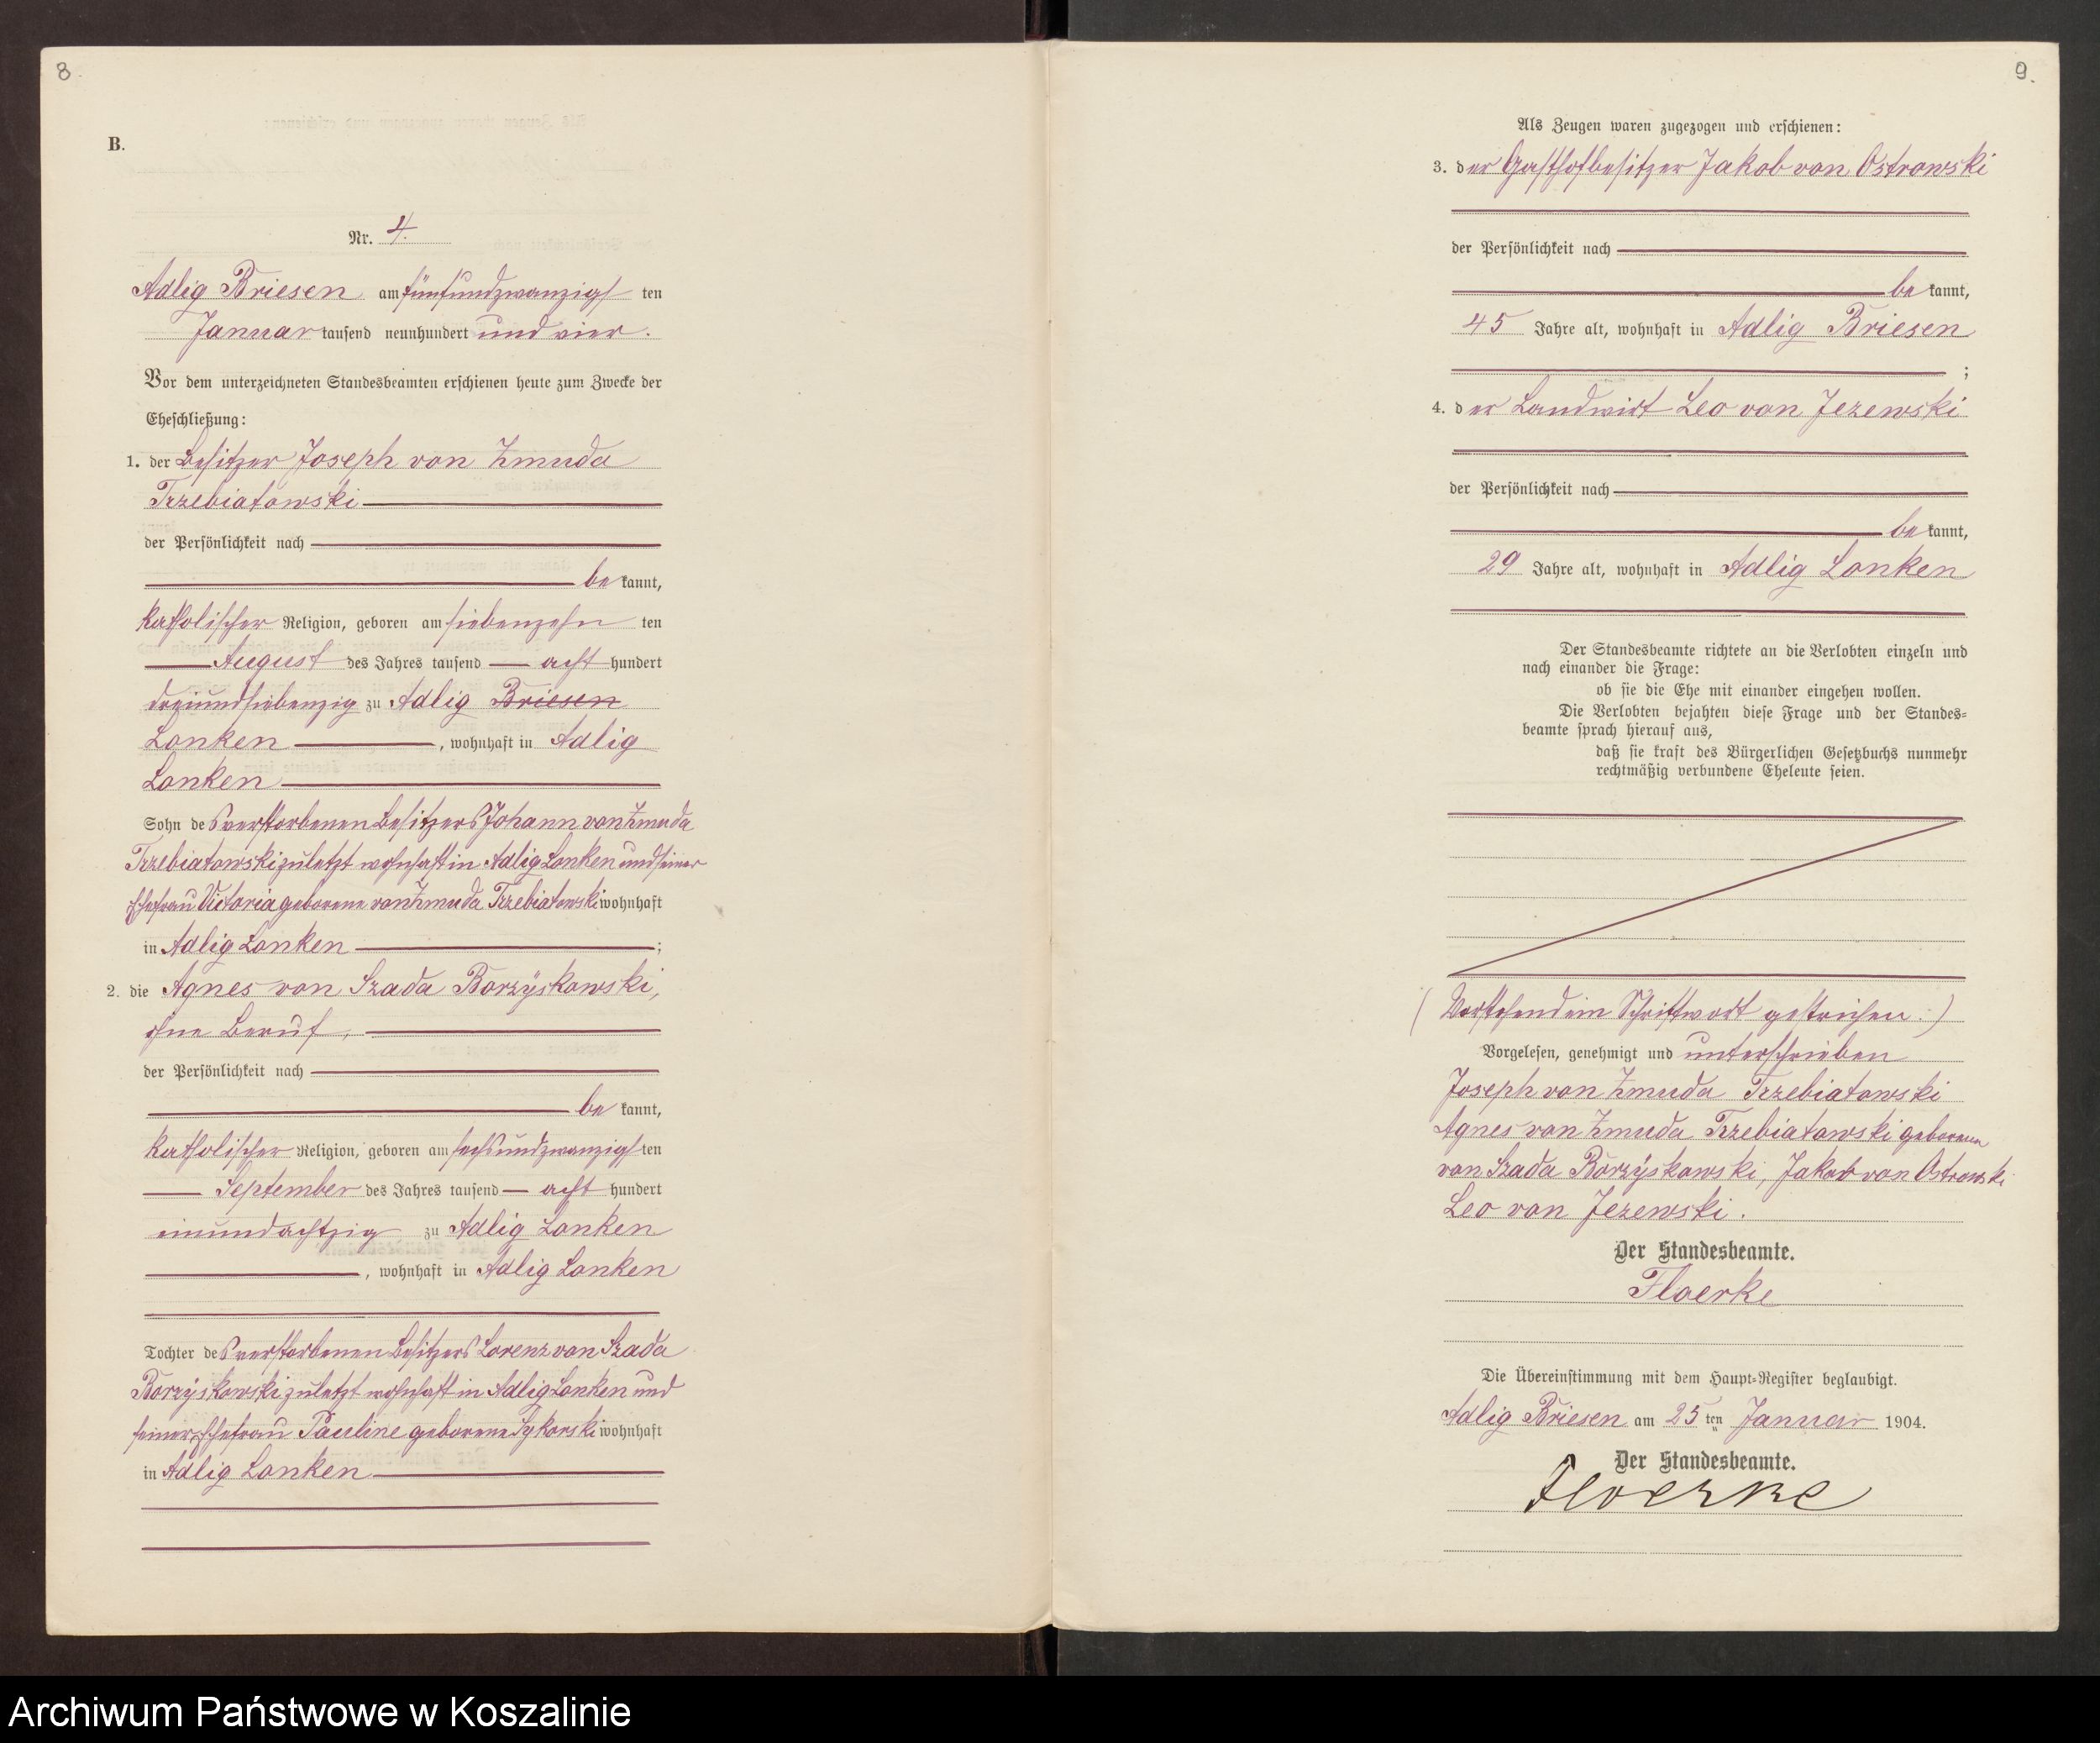 8
B.
Nr. 4.
Adlig Briesen am fünfundzwanzigsten
Januar tausend neunhundert und vier.
Vor dem unterzeichneten Standesbeamten erschienen heute zum Zwecke der
Eheschließung:
1. der Besitzer Joseph von Zmuda
Trzebiatowski
der Persönlichkeit nach
bekannt,
katholischer Religion, geboren am siebenzehnten
August des Jahres tausend acht hundert
dreiundsiebenzig zu Adlig Briesen
Lonken, wohnhaft in Adlig
Lonken
Sohn des verstorbenen Besitzers Johann von Zmuda
Trzebiatowski zuletzt wohnhaft in Adlig Lonken und seiner
Ehefrau Victoria geborene von Zmuda Trzebiatowski wohnhaft
in Adlig Lonken;
2. die Agnes von Szada Borzyskowski,
ohne Beruf,
der Persönlichkeit nach
bekannt,
katholischer Religion, geboren am sechsundzwanzigsten
September des Jahres tausend acht hundert
einundachtzig zu Adlig Lonken
, wohnhaft in Adlig Lonken
Tochter des verstorbenen Besitzers Lorenz von Szada
Borzyskowski zuletzt wohnhaft in Adlig Lonken und
seiner Ehefrau Pauline geborene Sykorski wohnhaft
in Adlig Lonken
9.
Als Zeugen waren zugezogen und erschienen:
3. der Gasthofbesitzer Jakob von Ostrowski
der Persönlichkeit nach
bekannt,
45 Jahre alt, wohnhaft in Adlig Briesen
;
4. der Landwirt Leo von Jezewski
der Persönlichkeit nach
bekannt,
29 Jahre alt, wohnhaft in Adlig Lonken
Der Standesbeamte richtete an die Verlobten einzeln und
nach einander die Frage:
ob sie die Ehe mit einander eingehen wollen.
Die Verlobten bejahten diese Frage und der Standes=
beamte sprach hierauf aus,
daß sie kraft des Bürgerlichen Gesetzbuchs nunmehr
rechtmäßig verbundene Eheleute seien.
(Vorstehend ein Schriftwort gestrichen.)
Vorgelesen, genehmigt und unterschrieben
Joseph von Zmuda Trzebiatowski
Agnes von Zmuda Trzebiatowski geborene
von Szada Borzyskowski, Jakob von Ostrowski
Leo von Jezewski.
Der Standesbeamte.
Floerke
Die Übereinstimmung mit dem Haupt=Register beglaubigt.
Adlig Briesen am 25 ten Januar 1904.
Der Standesbeamte.
Floerke
Archiwum Państwowe w Koszalinie